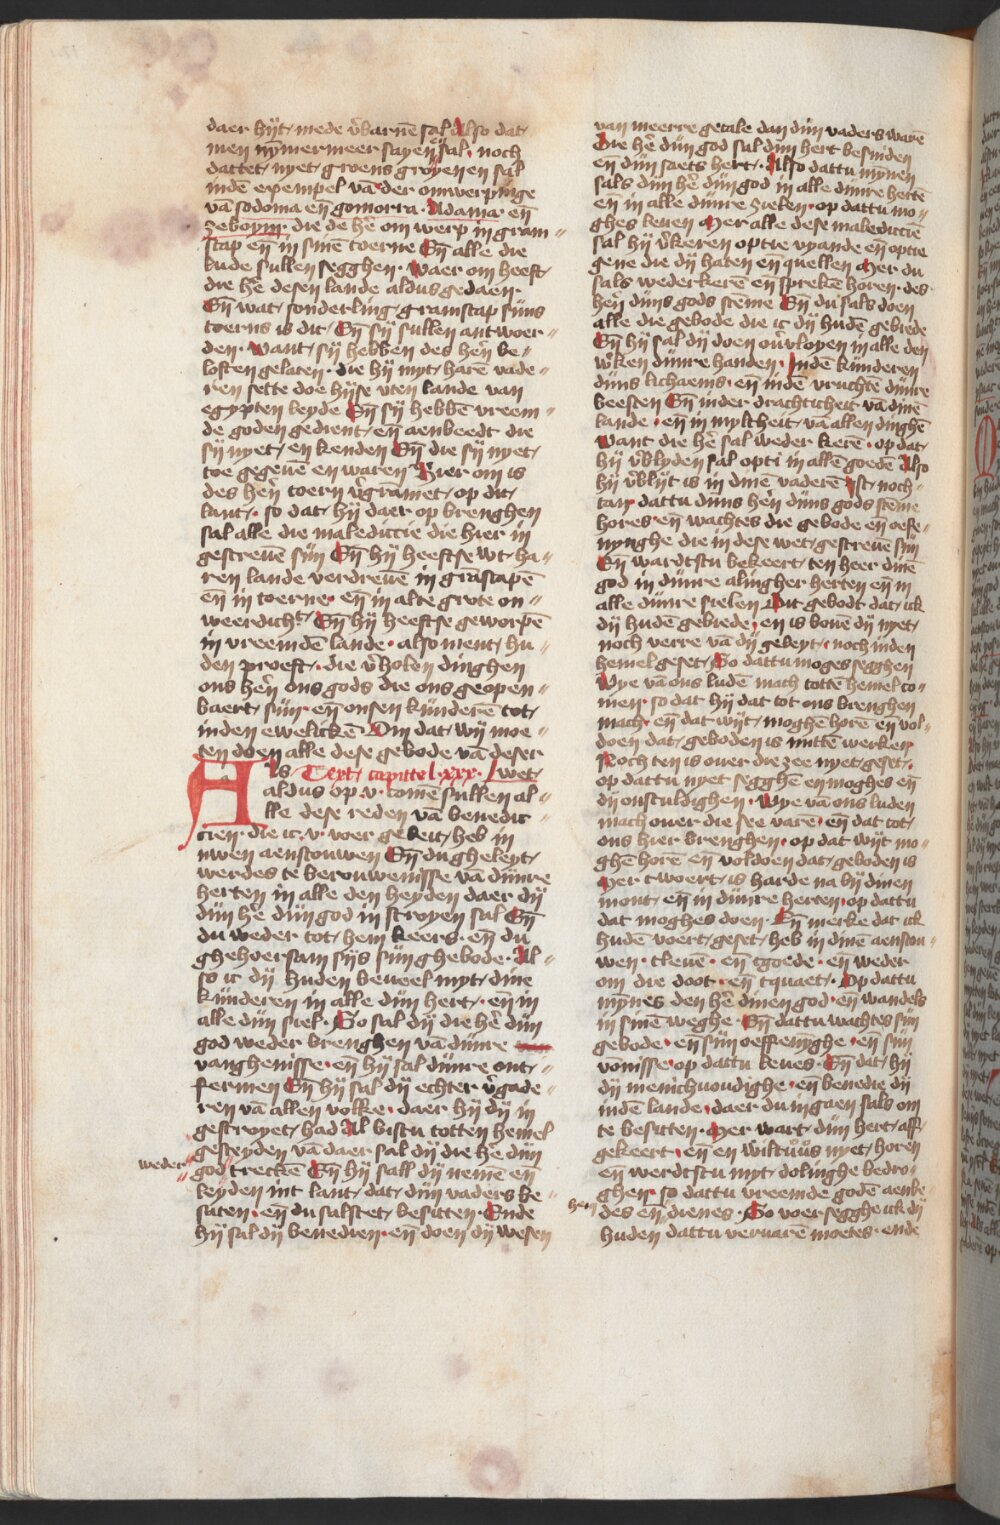 daer hijt mede v̄barnē sal Also dat
men nȳmermeer sayen sal· noch
dattet nyet gruens groyen en sal
indē exempel vā der omwerpinge
vā sodoma en̄ gomorra· Adama en̄
zeboym· die de hē om werp in gram⸗
scap en̄ in sinē toerne En̄ alle die
lude sullen segghen· Waer om heeft
die hē desen lande aldus gedaen·
En̄ wat sonderling gramscap sijns
toerns is dit En̄ sij sullen antwoer⸗
den· Want sij hebben des hēn be⸗
loften gelaten· die hij myt harē vade⸗
ren sette doe hijse uten lande van
egypten leyde En̄ sij hebbē vreem⸗
de goden gedient en̄ aenbeedt die
sij nyet en kenden En̄ die sij nyet
toe gegeuē en waren Hier om is
des hēn toern v̄gramet op dit
lant· so dat hij daer op brenghen
sal alle die maledictie die hier in
gescreuē sijn En̄ hij heeftse wt ha⸗
ren lande verdreuē in grāscapē
en̄ in toerne· en̄ in alte grote on⸗
weerdich͛ En̄ hij heeftse geworpē
in vreemdē lande· also ment hu⸗
den proeft· die v̄holen dinghen
ons hēn ons gods die ons geopen⸗
baert sijn· en̄ onsen kijnderē tot
inden ewelickē Om dat wij moe⸗
ten doen alle dese gebode vā deser
Als Text capittel lxxx· wet
aldus op .v. comē sullen al⸗
lle dese reden vā benedic⸗
cien· die ic .v. voer geleit heb in
uwen aenscouwen En̄ du gheleyt
werdes te berouwenisse vā dijnre
herten in alle den heyden daer dij
dijn hē dijn god in stroyen sal En̄
du weder tot hem keers· en̄ du
ghehoersam sijs sijn ghebode· Al⸗
so ic dij huden beueel myt dinē
kijnderen in alle dijn hert· en̄ in
alle dijn siel· So sal dij die hē dijn
god weder brenghen vā dijnre
vanghenisse· en̄ hij sal dijnre ont⸗
fermen En̄ hij sal dij echter v̄gade⸗
ren vā allen volke· daer hij dij in
gestroyet had Al bistu totten hemel
gescheyden vā daer sal dij die hē dijn
weder god trecken En̄ hij sall dij nemē en̄
leyden int lant dat dijn vaders be⸗
saten· en̄ du salstet besitten· Ende
hij sal dij benedien· en̄ doen dij wesen
van meerre getale dan dijn vaders warē
Die hē dijn god sal dijn hert besniden
en̄ dijn saets hert· Also dattu mȳnen
sals dijn hē dijn god in alle dijnre hertē
en̄ in alle dijnre zielen· op dattu mo⸗
ghes leuen Mer alle dese maledictiē
sal hij v̄keren optie vyande en̄ optie
gene die dij haten en̄ quellen Mer du
sals wederkerē en̄ sprekē horen· des
hēn dijns gods stēme En̄ du sals doen
alle die gebode die ic dij hudē gebiede
En̄ hij sal dij doen ouv̄lopen in alle den
wͤken dijnre handen· Indē kijnderen
dijns lichaems· en̄ indē vruchtē dijnre
beesten En̄ in der drachticheit vā dinē
lande· en̄ in myltheit vā allen dinghē
Want die hē sal weder kerē· op dat
hij v̄blyden sal op ti in allē goedē Also
hij v̄blijt is in dinē vaderē Ist noch⸗
tan dattu dijns hēn dijns gods stēme
hores en̄ wachtes die gebode en̄ oefe⸗
nynghe die in dese wet gescreuē sijn
En̄ wardtstu bekeert ten heer dinē
god in dijnre alingher herten en̄ in
alle dijnre sielen Dit gebodt dat ick
dij hudē gebiede· en is bouē dij nyet
noch verre vā dij geleyt· noch inden
hemel geset So dattu moges segghen
Wye vā ons ludē mach tottē hemel co⸗
men· so dat hij dat tot ons brenghen
mach· en̄ dat wijt moghē horē en̄ vol⸗
doen dat geboden is mittē werken
Noch ten is ouer die zee nyet geset·
op dattu nyet segghē en moghes en̄
dij onsculdighen· Wye vā ons luden
mach ouer die see varē· en̄ dat tot
ons hier brenghen· op dat wijt mo⸗
ghē horē en̄ voldoen dat geboden is
Mer twoert is harde na bij dinen
mont en̄ in dijnre herten· op dattu
dat moghes doen· En̄ merke dat ick
hudē voert geset heb in dinē aenscou⸗
wen· tleuē· en̄ tgoede· en̄ weder
om die doot· en̄ tquaet· Op dattu
mȳnes den hē dinen god· en̄ wandels
in sinē weghe· En̄ dattu wachtes sijn
gebode· en̄ sijn oeffenynghe· en̄ sijn
vōnisse op dattu leues· En̄ dat hij
dij menichuoudighe· en̄ benedie dij
indē lande· daer du ingaen sals om
te besitten· Mer wart dijn hert aff⸗
gekeert· en̄ en wiltuus nyet horen
en̄ werdtstu myt dolinghe bedro⸗
ghen· so dattu vreemde godē aenbe
hen des en̄ dienes· So voer segghe ick dij
huden dattu veruarē moetes· ende